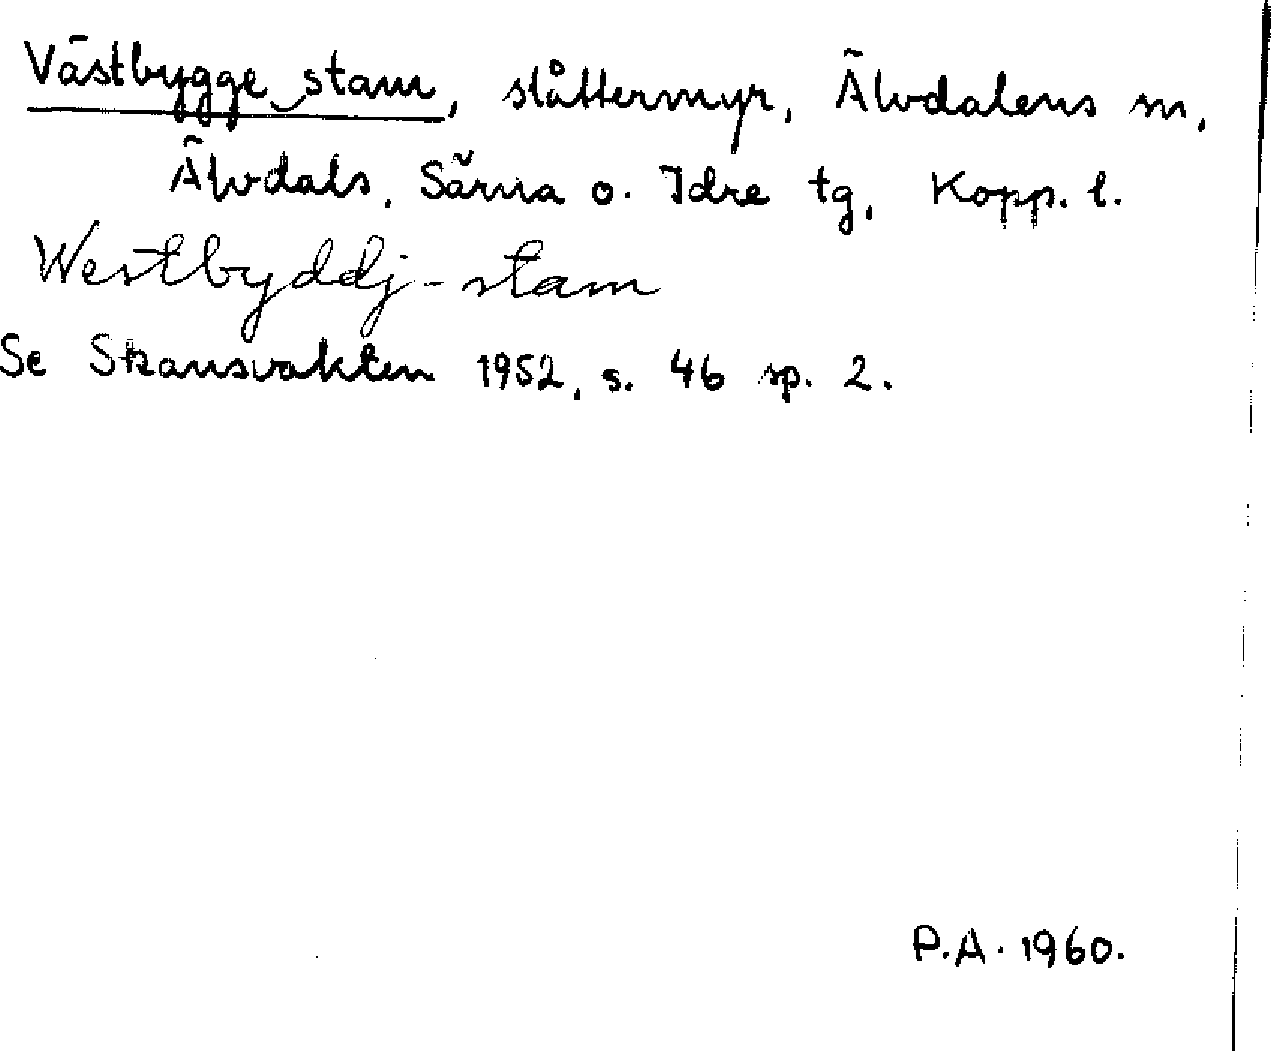 Västbygge stam, slåttermyr, Älvdalens sn,
Älvdals, Särna o. Idre tg, Kopp. l.
Westbyddj-stam
Se Skansvakten 1952, s. 46 sp. 2.
P.A. 1960.